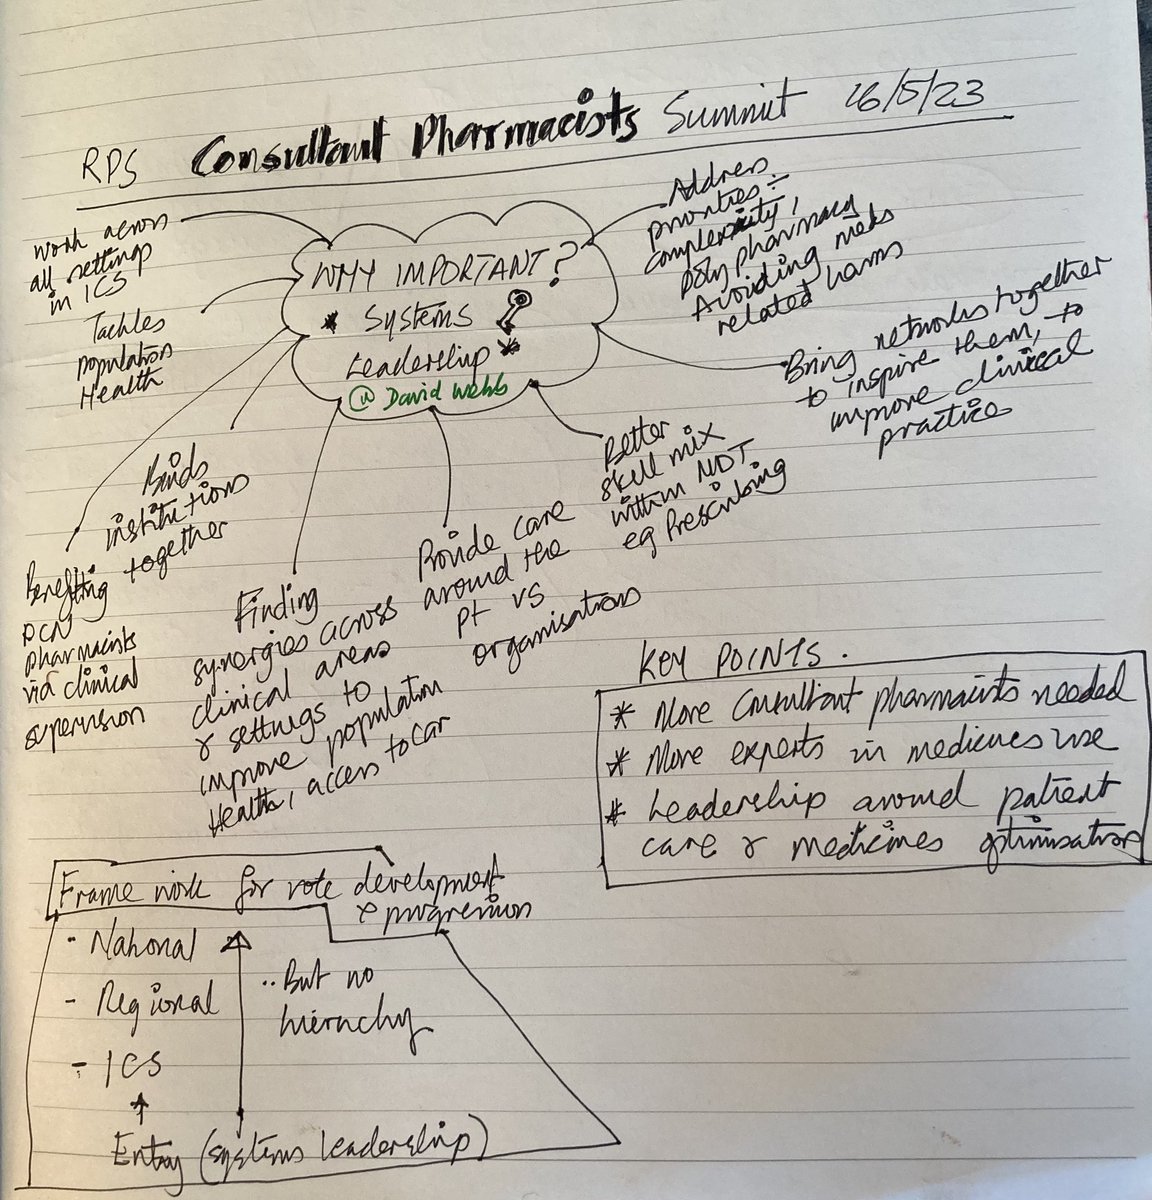 RPS Consultant Pharmacists Summit 16/5/23
WHY IMPORTANT?
* Systems
Leadership *
@ David Webb
work across
all settings
in ICS
Tackles
population
Health
Binds
institutions
together
Benefiting
PCN
pharmacists
via clinical
supervision
Finding
synergies across
clinical areas
& settings to
improve population
Health, access to car
Provide care
around the
pt vs
organisations
Better
skill mix
within MDT
eg Prescribing
Bring networks together
to inspire them, to
improve clinical
practice
Address
priorities ÷
complexity,
polypharmacy
Avoiding meds
related harms
KEY POINTS.
* More Consultant pharmacists needed
* More experts in medicines use
* Leadership around patient
care & medicines optimisation
Frame work for role development
& progression
- National
- Regional
- ICS
Entry (systems leadership)
..But no
hierachy